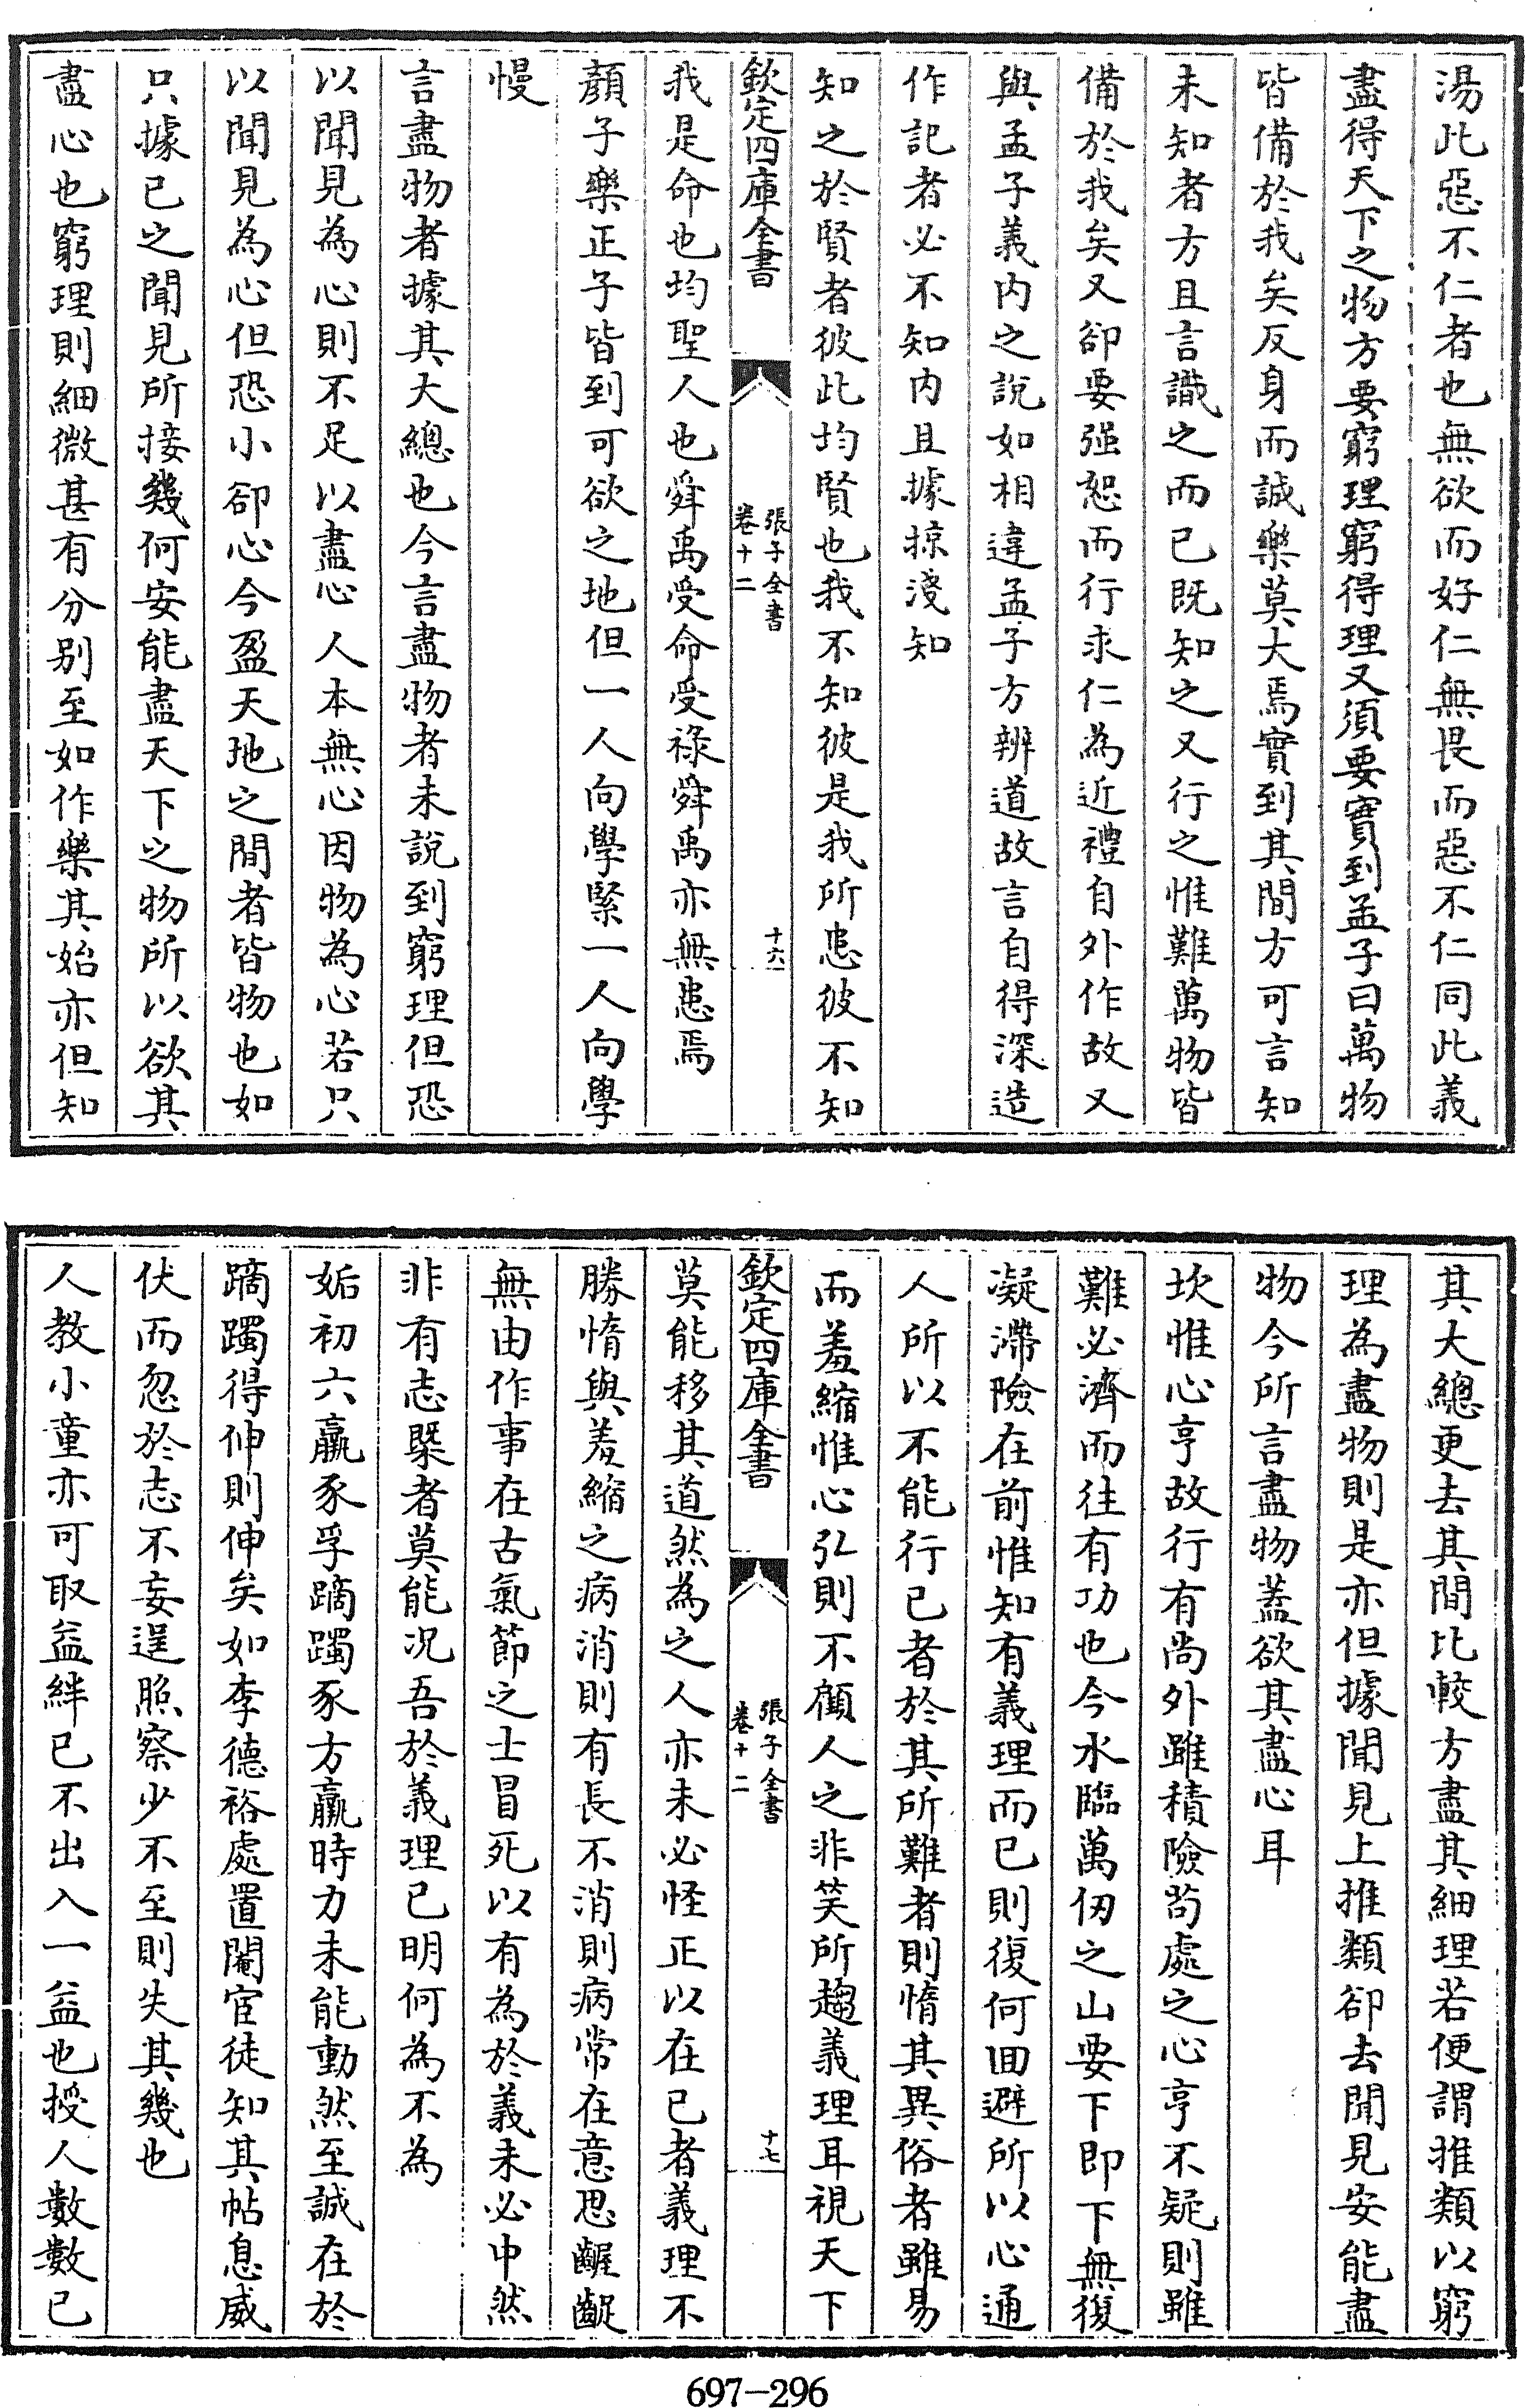 湯此惡不仁者也無欲而好仁無畏而惡不仁同此義
盡得天下之物方要窮理窮得理又須要實到孟子曰萬物
皆備於我矣反身而誠樂莫大焉實到其間方可言知
未知者方且言識之而已既知之又行之惟難萬物皆
備於我矣又卻要强恕而行求仁為近禮自外作故又
與孟子義内之說如相違孟子方辨道故言自得深造
作記者必不知内且據掠淺知
知之於賢者彼此均賢也我不知彼是我所患彼不知
欽定四庫全書
張子全書
卷十二
十六
我是命也均聖人也舜禹受命受祿舜禹亦無患焉
顏子樂正子皆到可欲之地但一人向學緊一人向學
慢
言盡物者據其大總也今言盡物者未說到窮理但恐
以聞見為心則不足以盡心人本無心因物為心若只
以聞見為心但恐小卻心今盈天地之間者皆物也如
只據已之聞見所接幾何安能盡天下之物所以欲其
盡心也窮理則細微甚有分别至如作樂其始亦但知
其大總更去其間比較方盡其細理若便謂推類以窮
理為盡物則是亦但據聞見上推類卻去聞見安能盡
物今所言盡物蓋欲其盡心耳
坎惟心亨故行有尚外雖積險苟處之心亨不疑則雖
難必濟而往有功也今水臨萬仞之山要下即下無復
凝滯險在前惟知有義理而已則復何回避所以心通
人所以不能行已者於其所難者則惰其異俗者雖易
而羞縮惟心弘則不顧人之非笑所趨義理耳視天下
欽定四庫全書
張子全書
卷十二
十七
莫能移其道然為之人亦未必怪正以在已者義理不
勝惰與羞縮之病消則有長不消則病常在意思齷齪
無由作事在古氣節之士冒死以有為於義未必中然
非有志槩者莫能况吾於義理已明何為不為
姤初六羸豕孚蹢躅豕方羸時力未能動然至誠在於
蹢躅得伸則伸矣如李德裕處置閹宦徒知其帖息威
伏而忽於志不妄逞照察少不至則失其幾也
人教小童亦可取益絆已不出入一益也授人數數已
697-296